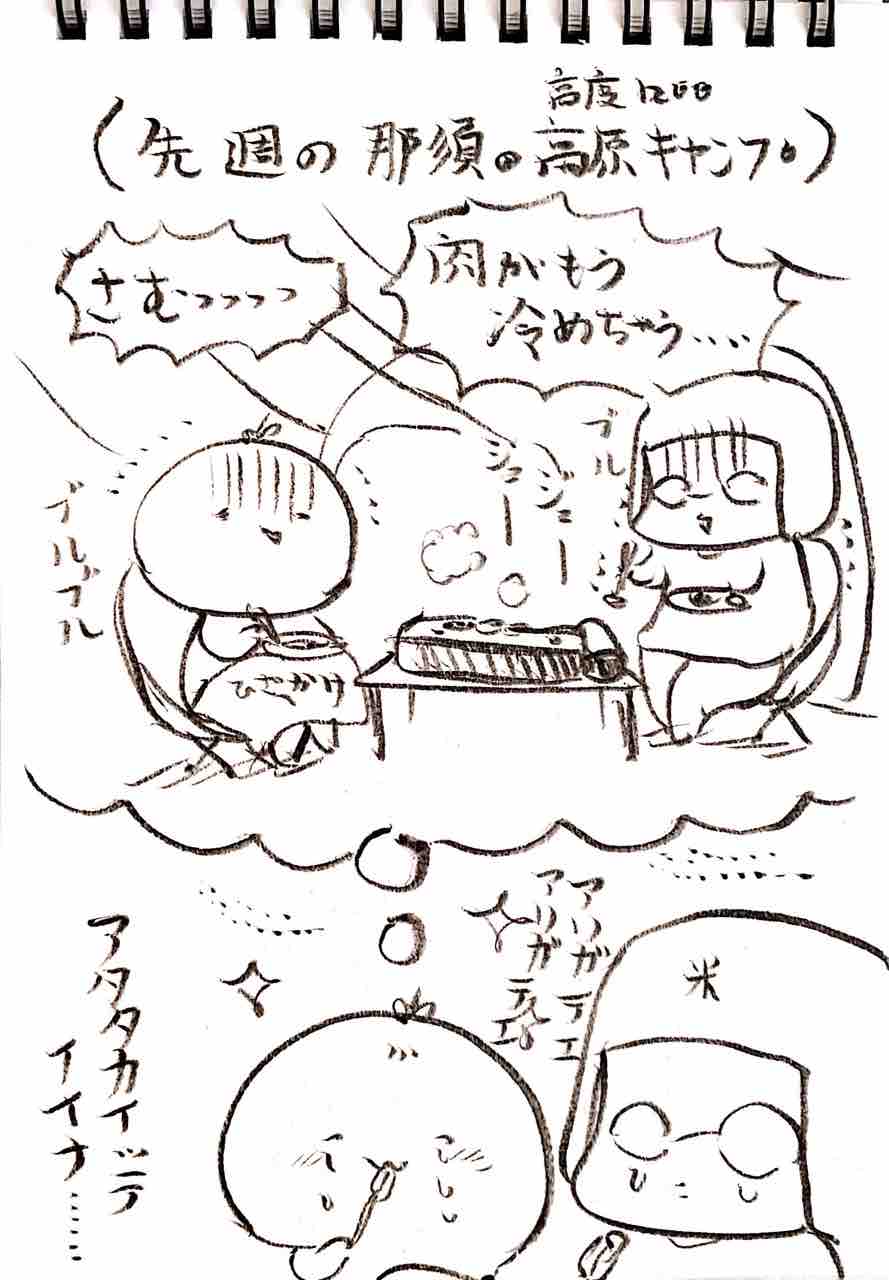 高度1200
(先週の那須の高原キャンプ)
肉がもう
冷めちゃう....
さむっっっっ
ブル
ジュー
ジュー
ブルブル
ひざかけ
アリガテエ
アリガテエ
米
アタタカイッテ
イイナ......